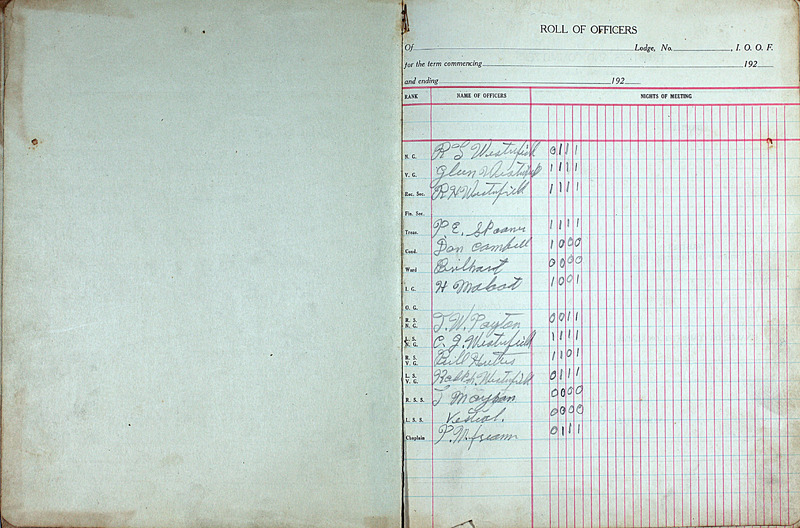 ROLL OF OFFICERS
Of Lodge, No. , I. O. O. F.
for the term commencing 192
and ending 192
RANK NAME OF OFFICERS NIGHTS OF MEETING
N. G. R S Westerfield 0 1 1 1
V. G. Glenn Westerfield 1 1 1 1
Rec. Sec. R H Westerfield 1 1 1 1
Fin. Sec.
Treas. P. E. 1 1 1 1
Cond. Don Cambell 1 0 0 0
Ward 0 0 0 0
I. G. H 1 0 0 1
O. G.
R. S. N. G. T. W. Payton 0 0 1 1
L. S. N. G. C. J. Westerfield 1 1 1 1
R. S. V. G. Bill 1 1 0 1
L. S. V. G. Ralph Westerfield 0 1 1 1
R. S. S. 0 0 0 0
L. S. S. 0 0 0 0
Chaplain P. M. 0 1 1 1